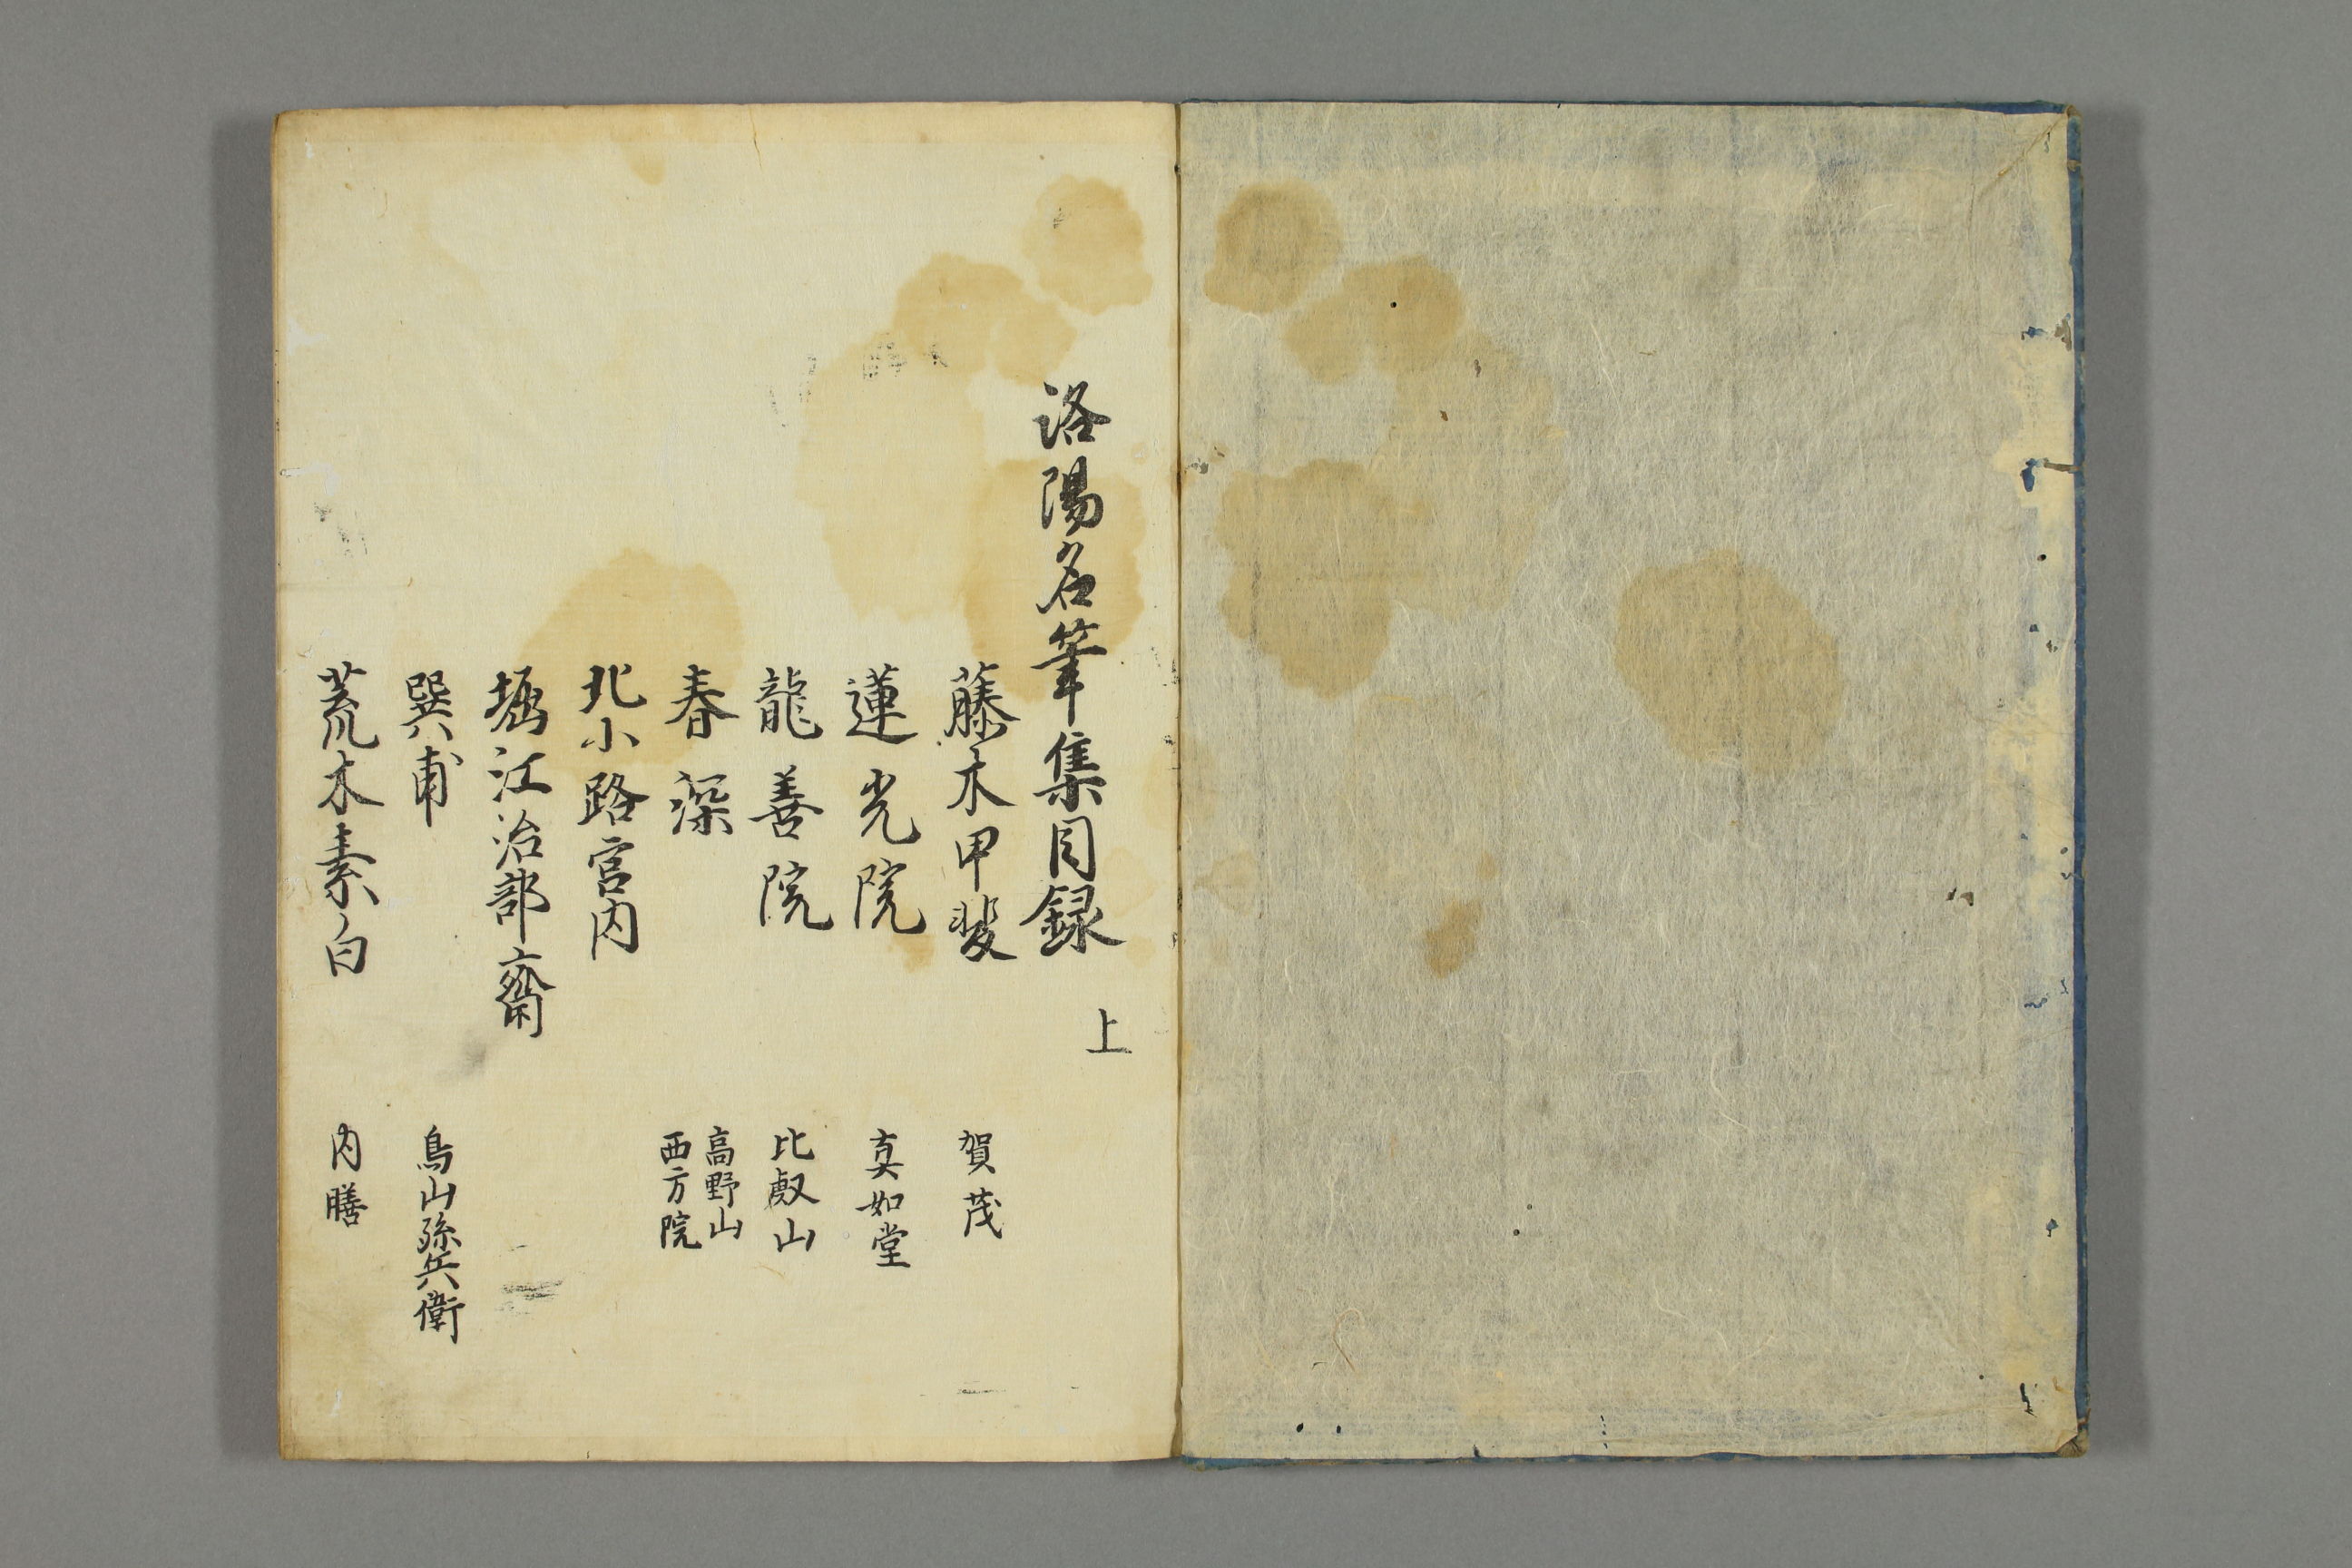 洛陽名筆集目録 上
藤木甲斐 賀茂
蓮光院 真如堂
龍善院 比叡山
春深 高野山
西方院
北小路宮内
堀江治部齋
巽甫 鳥山孫兵衛
荒木素白 内膳